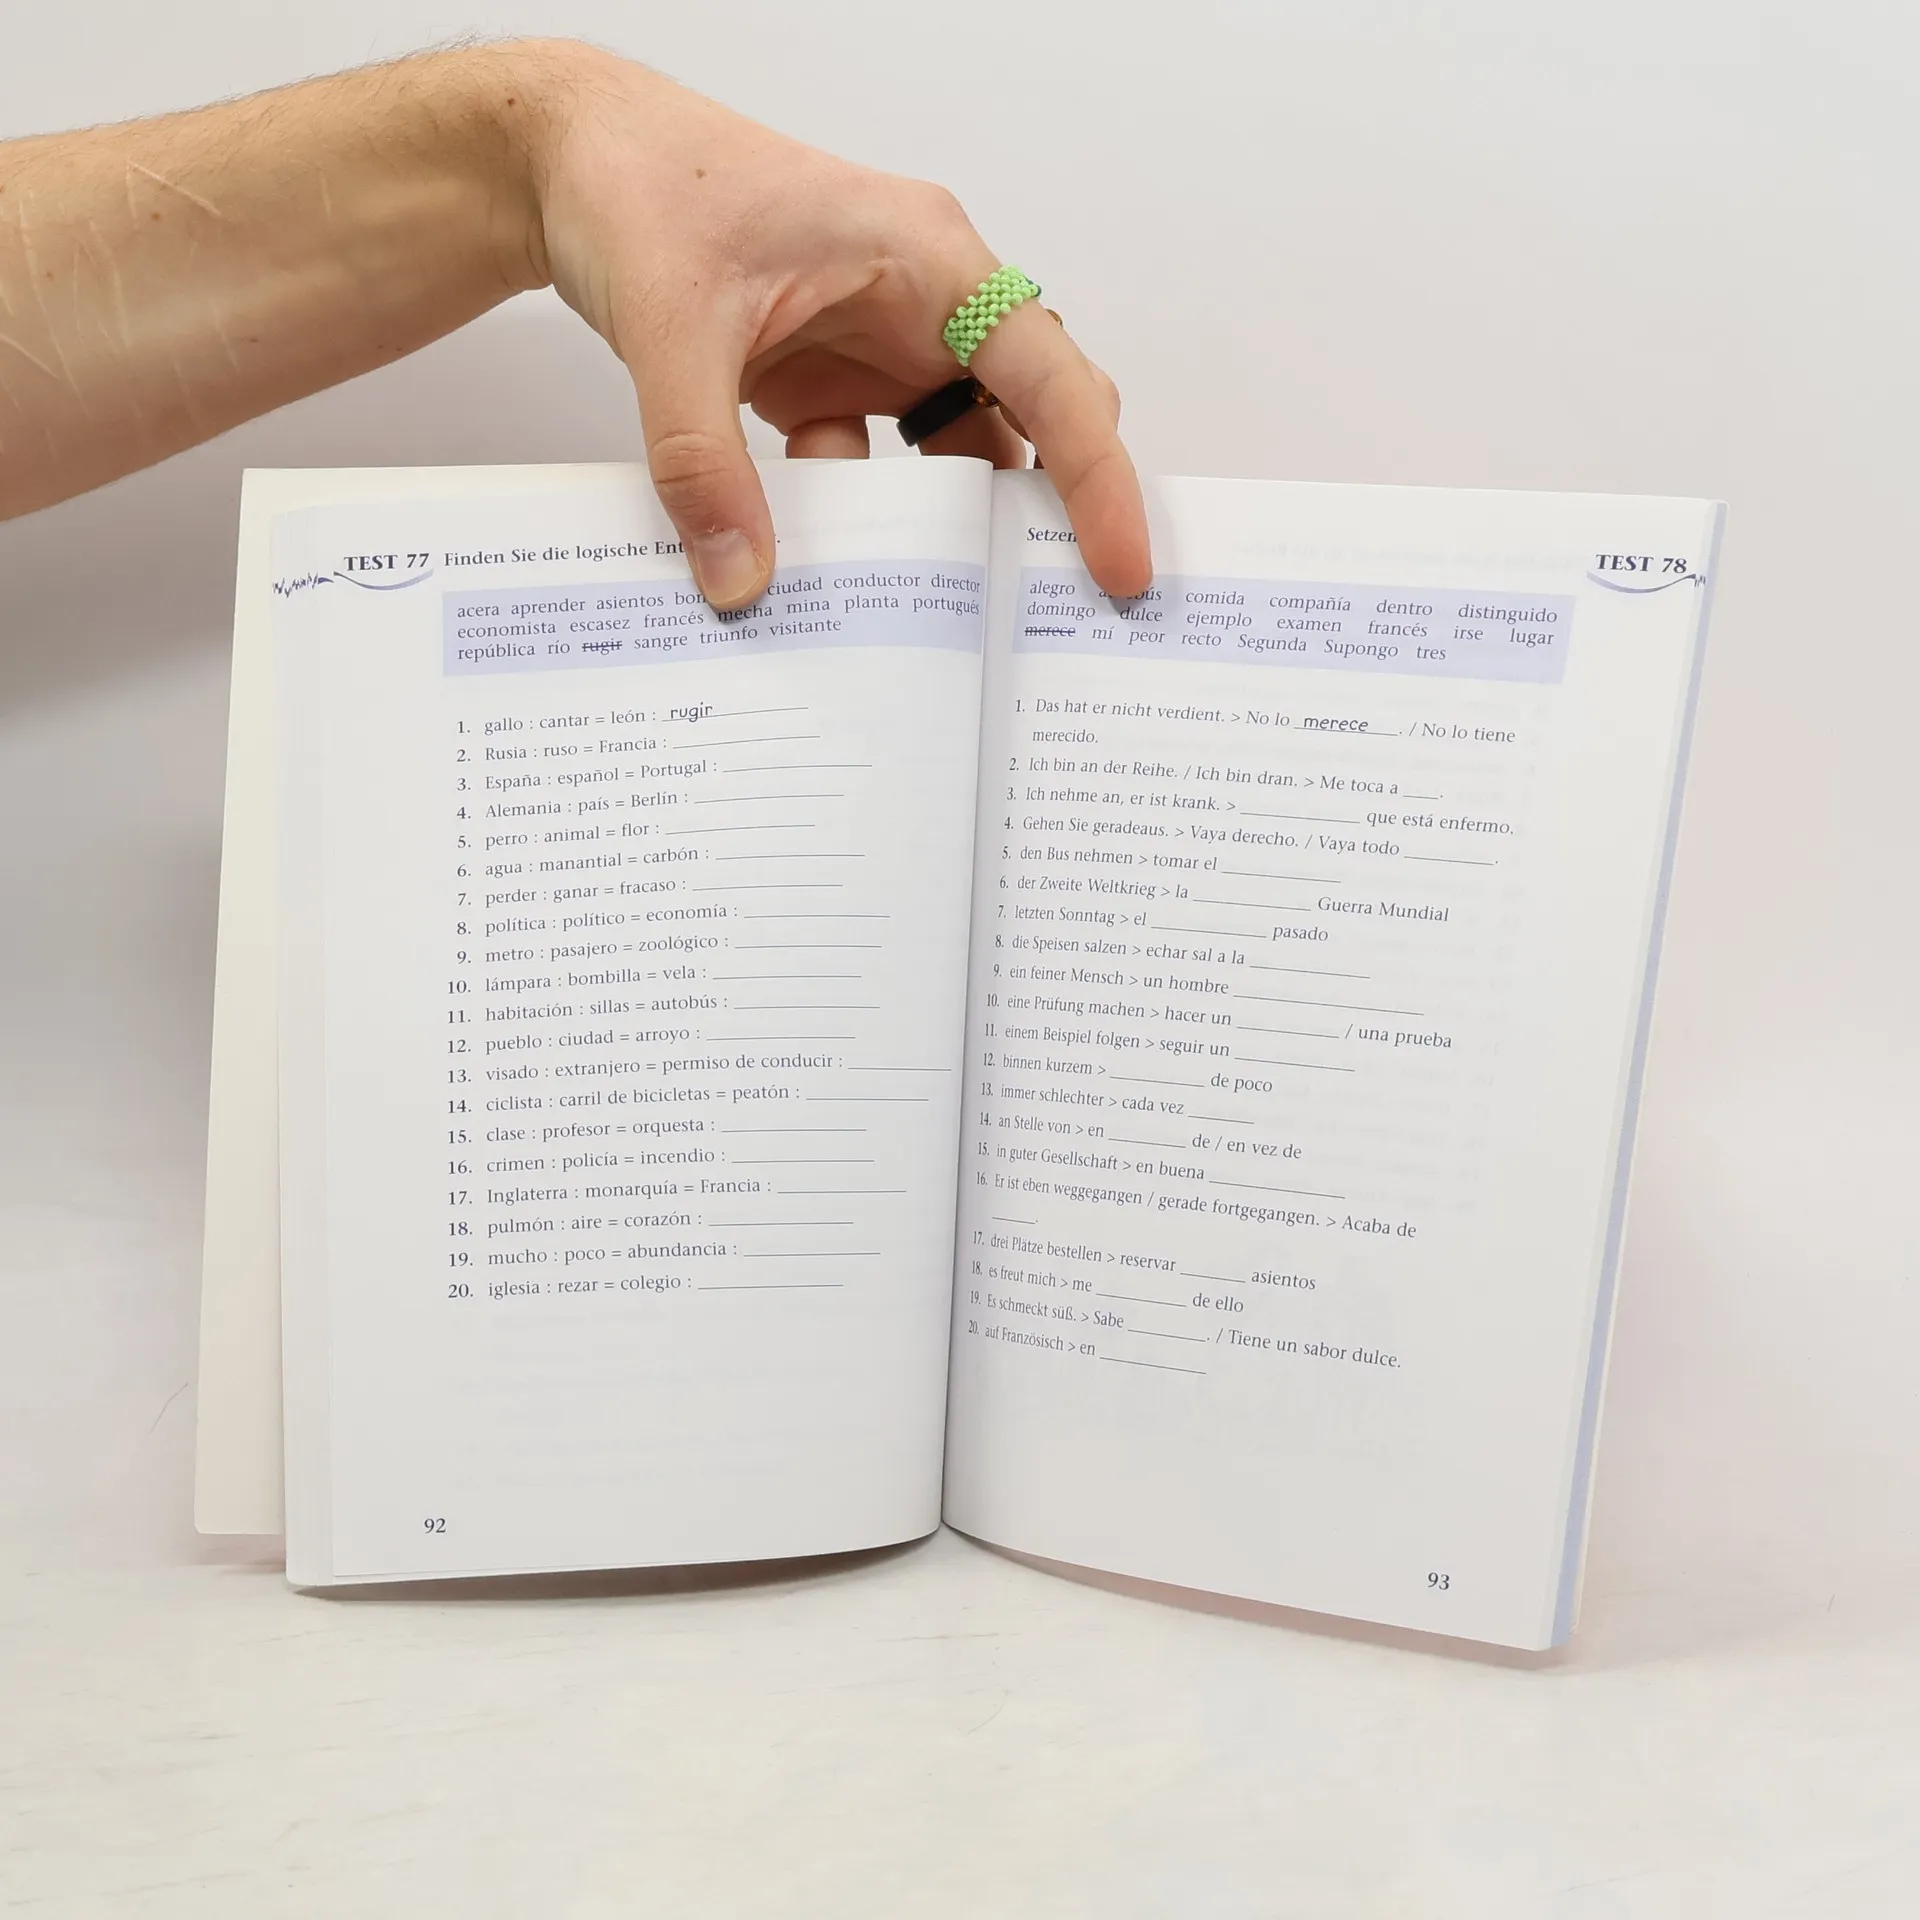 TEST 77 Finden Sie die logische
acera aprender asientos ciudad conductor director
economista escasez francés mecha mina planta portugués
república río rugir sangre triunfo visitante
1. gallo : cantar = león : rugir
2. Rusia : ruso = Francia :
3. España : español = Portugal :
4. Alemania : país = Berlín :
5. perro : animal = flor :
6. agua : manantial = carbón :
7. perder : ganar = fracaso :
8. política : político = economía :
9. metro : pasajero = zoológico :
10. lámpara : bombilla = vela :
11. habitación : sillas = autobús :
12. pueblo : ciudad = arroyo :
13. visado : extranjero = permiso de conducir :
14. ciclista : carril de bicicletas = peatón :
15. clase : profesor = orquesta :
16. crimen : policía = incendio :
17. Inglaterra : monarquía = Francia :
18. pulmón : aire = corazón :
19. mucho : poco = abundancia :
20. iglesia : rezar = colegio :
92
Setzen
TEST 78
alegro comida compañía dentro distinguido
domingo dulce ejemplo examen francés irse lugar
merece mí peor recto Segunda Supongo tres
1. Das hat er nicht verdient. > No lo merece. / No lo tiene
merecido.
2. Ich bin an der Reihe. / Ich bin dran. > Me toca a ____.
3. Ich nehme an, er ist krank. > ____ que está enfermo.
4. Gehen Sie geradeaus. > Vaya derecho. / Vaya todo ____.
5. den Bus nehmen > tomar el ____
6. der Zweite Weltkrieg > la ____ Guerra Mundial
7. letzten Sonntag > el ____ pasado
8. die Speisen salzen > echar sal a la ____
9. ein feiner Mensch > un hombre ____
10. eine Prüfung machen > hacer un ____ / una prueba
11. einem Beispiel folgen > seguir un ____
12. binnen kurzem > ____ de poco
13. immer schlechter > cada vez ____
14. an Stelle von > en ____ de / en vez de
15. in guter Gesellschaft > en buena ____
16. Er ist eben weggegangen / gerade fortgegangen. > Acaba de
____.
17. drei Plätze bestellen > reservar ____ asientos
18. es freut mich > me ____ de ello
19. Es schmeckt süß. > Sabe ____. / Tiene un sabor dulce.
20. auf Französisch > en ____
93